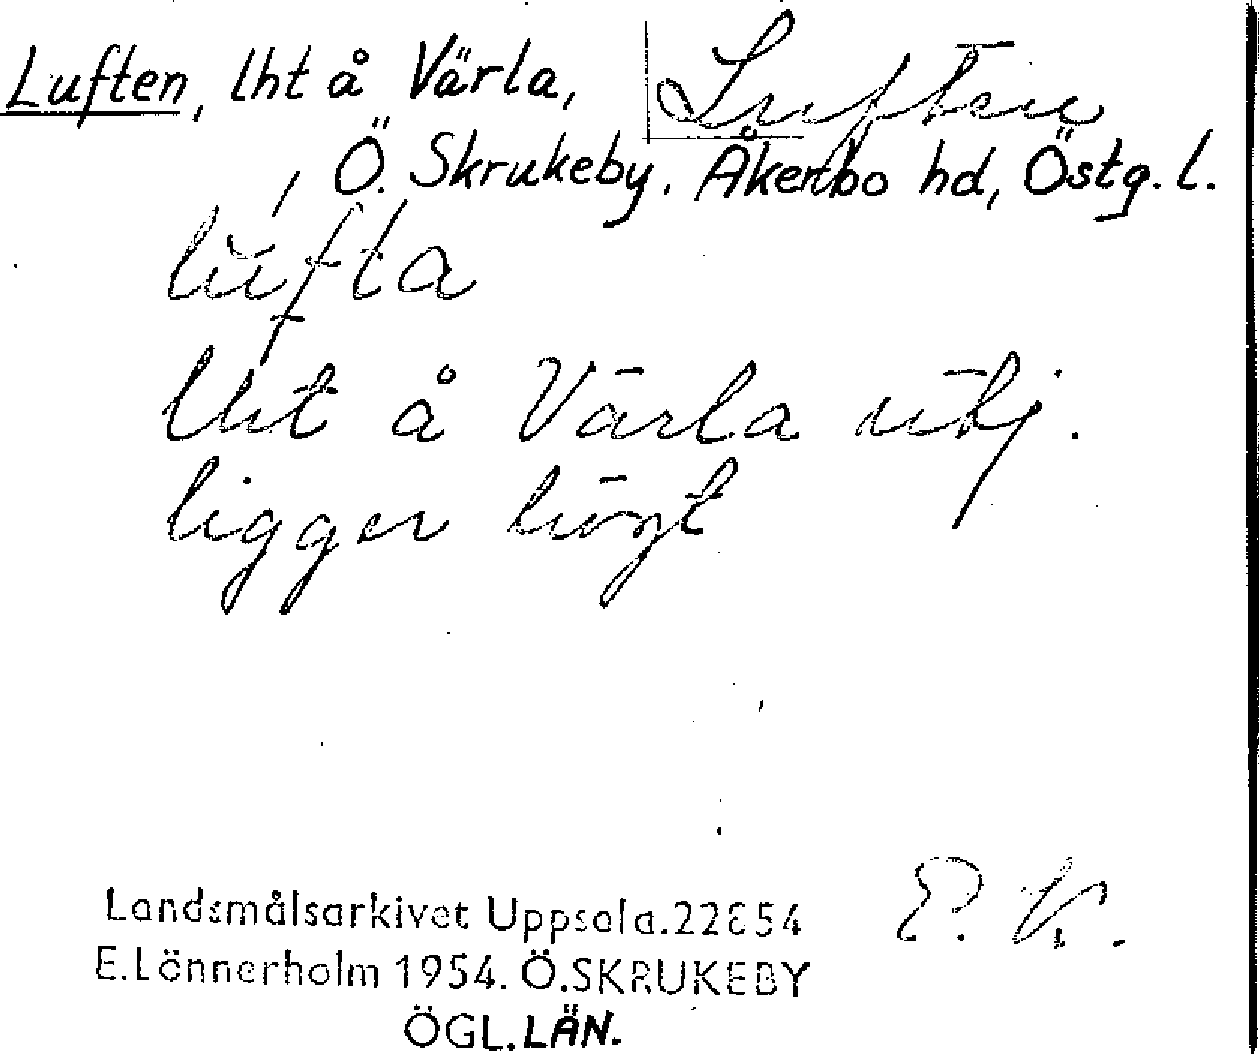 Luften, lht å Värla, Luften
Ö. Skrukeby. Åkerbo hd, Östg. l.
lufta
lht å Värla utj.
ligger högt
E. K.
Landsmålsarkivet Uppsala.22854
E.Lönnerholm 1954. Ö.SKRUKEBY
ÖGL.LÄN.